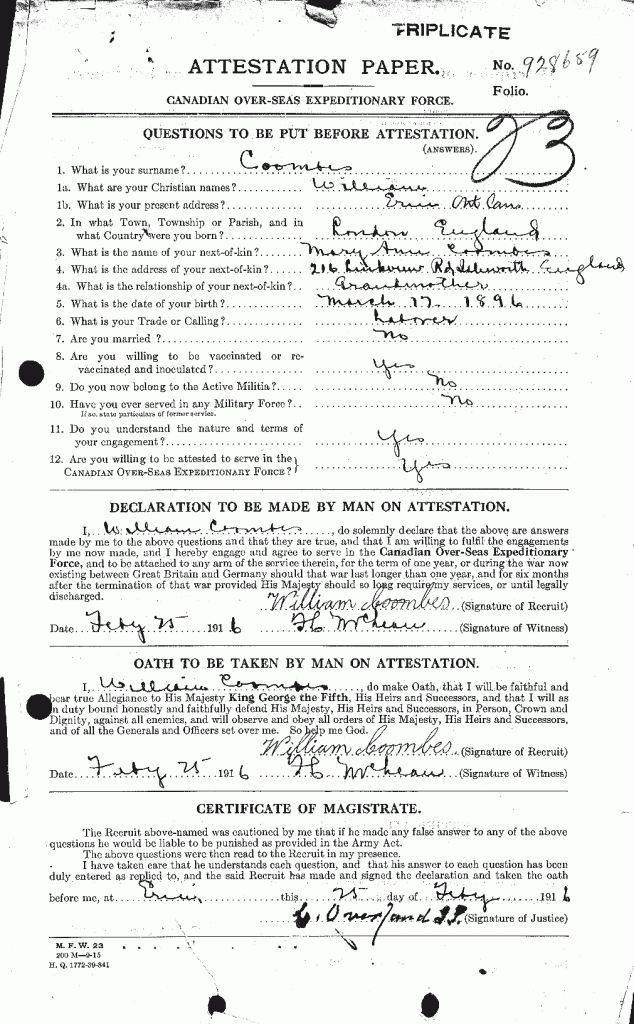 TRIPLICATE
ATTESTATION PAPER.
No. 928659
Folio.
CANADIAN OVER-SEAS EXPEDITIONARY FORCE.
23
QUESTIONS TO BE PUT BEFORE ATTESTATION.
(ANSWERS).
1. What is your surname? Coombes
1a. What are your Christian names? William
1b. What is your present address? Erin Ont. Can.
2. In what Town, Township or Parish, and in
what Country were you born? London England
3. What is the name of your next-of-kin? Mary Ann Coombes
4. What is the address of your next-of-kin? 216 Linkview Rd Isleworth England
4a. What is the relationship of your next-of-kin? Grandmother
5. What is the date of your birth? March 17 1896
6. What is your Trade or Calling? Laborer
7. Are you married? No
8. Are you willing to be vaccinated or re-
vaccinated and inoculated? Yes
9. Do you now belong to the Active Militia? No
10. Have you ever served in any Military Force? No
If so, state particulars of former service.
11. Do you understand the nature and terms of
your engagement? Yes
12. Are you willing to be attested to serve in the
CANADIAN OVER-SEAS EXPEDITIONARY FORCE? Yes
DECLARATION TO BE MADE BY MAN ON ATTESTATION.
I, William Coombes, do solemnly declare that the above are answers
made by me to the above questions and that they are true, and that I am willing to fulfil the engagements
by me now made, and I hereby engage and agree to serve in the Canadian Over-Seas Expeditionary
Force, and to be attached to any arm of the service therein, for the term of one year, or during the war now
existing between Great Britain and Germany should that war last longer than one year, and for six months
after the termination of that war provided His Majesty should so long require my services, or until legally
discharged.
William Coombes (Signature of Recruit)
Date Feby 25 1916 (Signature of Witness)
OATH TO BE TAKEN BY MAN ON ATTESTATION.
I, William Coombes, do make Oath, that I will be faithful and
bear true Allegiance to His Majesty King George the Fifth, His Heirs and Successors, and that I will as
in duty bound honestly and faithfully defend His Majesty, His Heirs and Successors, in Person, Crown and
Dignity, against all enemies, and will observe and obey all orders of His Majesty, His Heirs and Successors,
and of all the Generals and Officers set over me. So help me God.
William Coombes (Signature of Recruit)
Date Feby 25 1916 (Signature of Witness)
CERTIFICATE OF MAGISTRATE.
The Recruit above-named was cautioned by me that if he made any false answer to any of the above
questions he would be liable to be punished as provided in the Army Act.
The above questions were then read to the Recruit in my presence.
I have taken care that he understands each question, and that his answer to each question has been
duly entered as replied to, and the said Recruit has made and signed the declaration and taken the oath
before me, at Erin, this 25 day of Feby 1916
Overland J.P. (Signature of Justice)
M. F. W. 23
200 M—9-15
H. Q. 1772-39-841